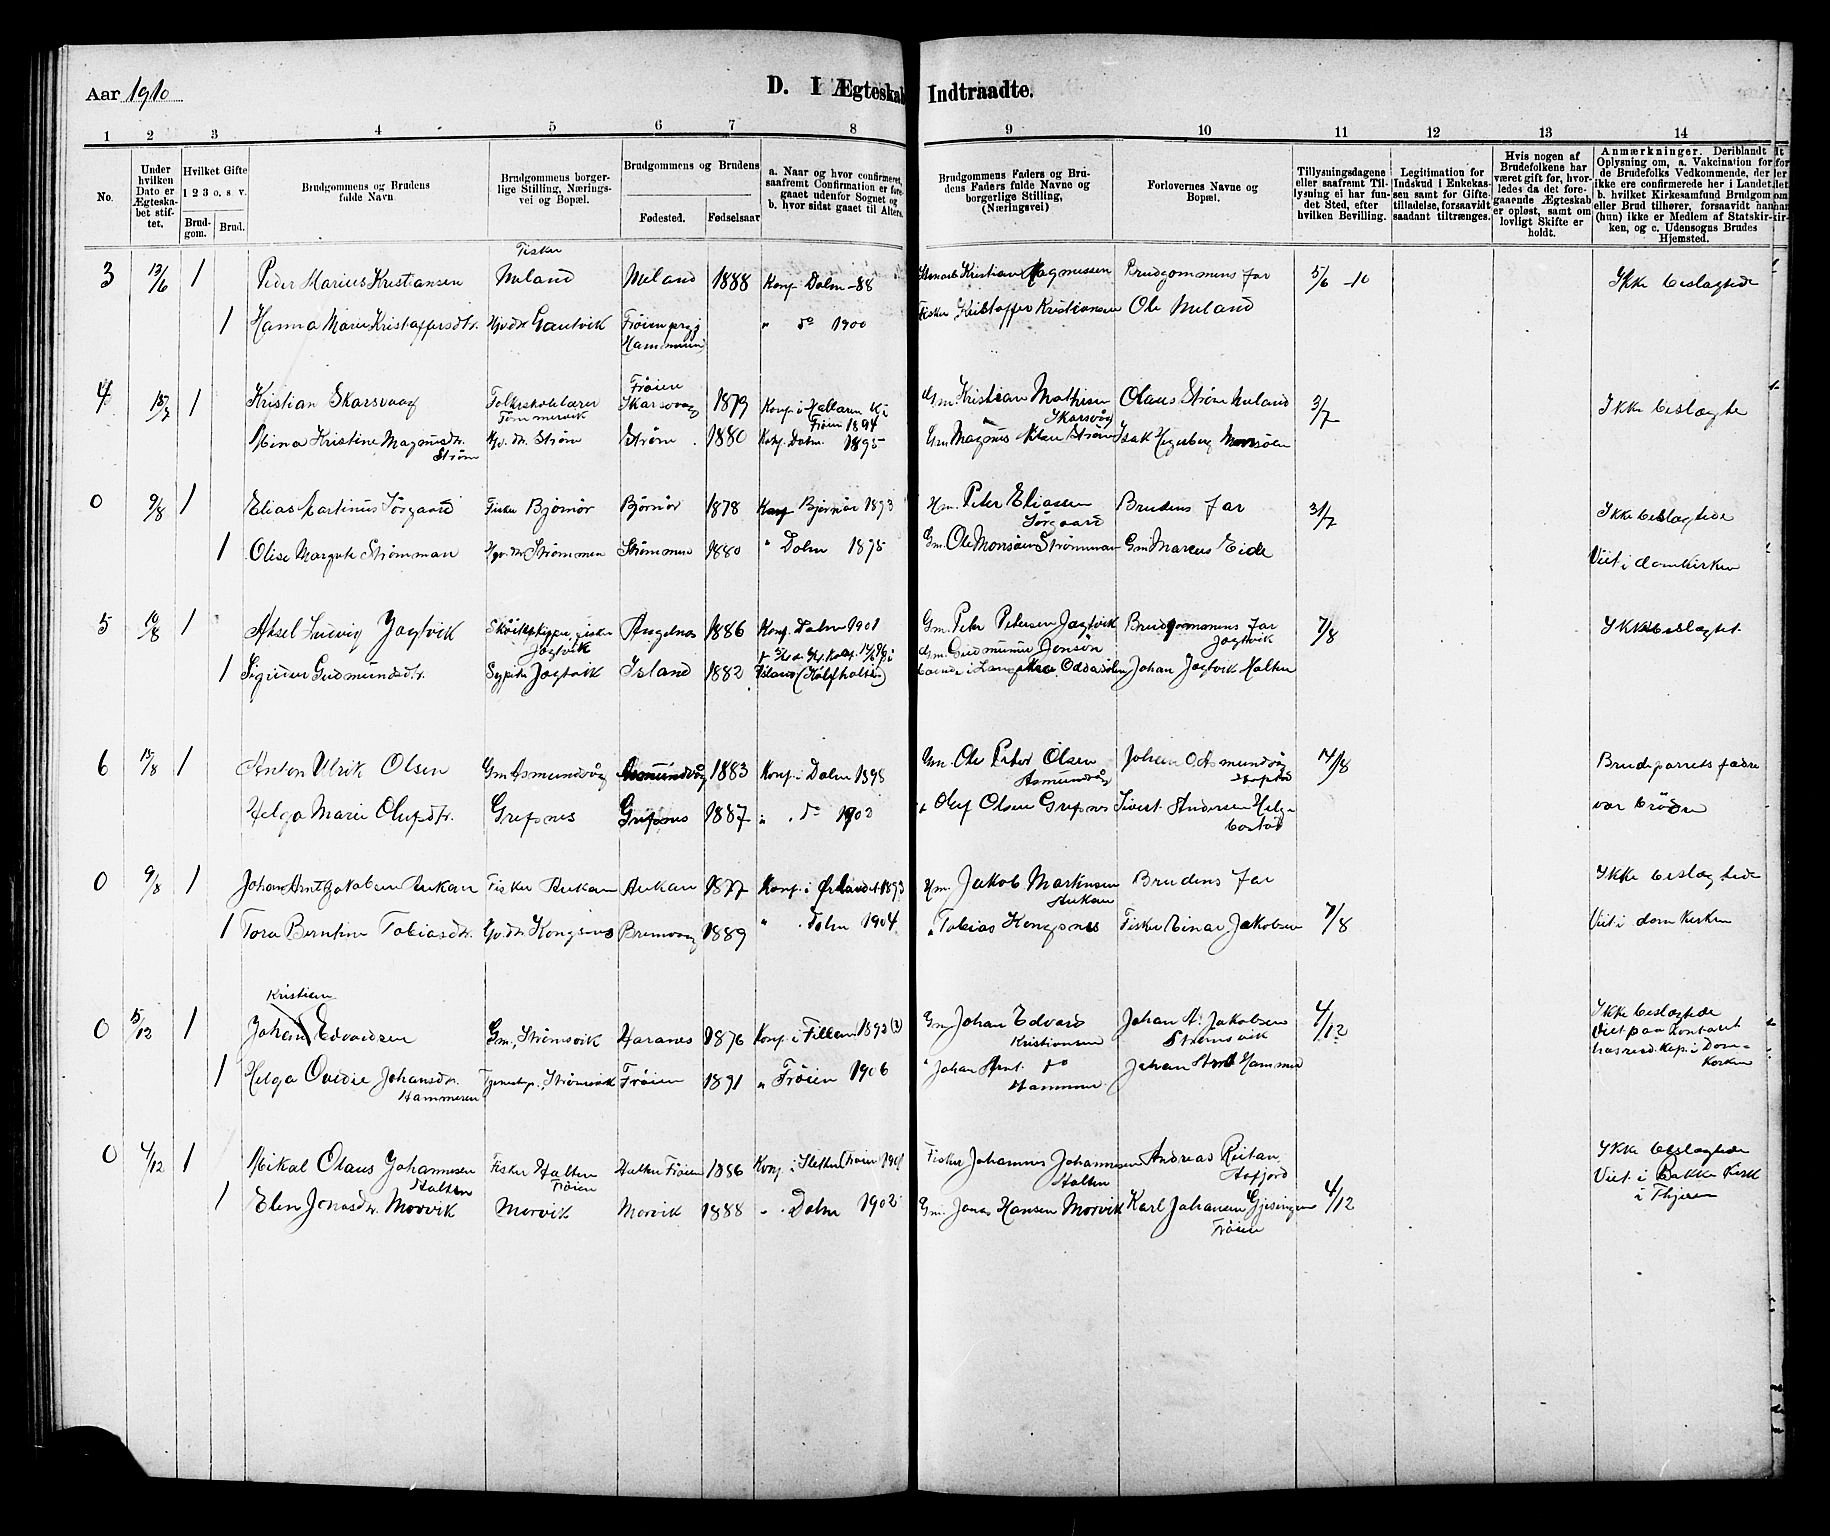 Aar 1910
D. I Ægteskab Indtraadte.
1 2 3 4 5 6 7 8 9 10 11 12 13 14
No.
Under hvilken Dato er Ægteskabet stiftet.
Hvilket Gifte 1 2 3 o. s. v.
Brudgom. Brud.
Brudgommens og Brudens fulde Navn
Brudgommens borgerlige Stilling, Næringsvei og Bopæl.
Brudgommens og Brudens
Fødested. Fødselsaar
a. Naar og hvor confirmeret, saafremt Confirmation er foregaaet udenfor Sognet og b. hvor sidst gaaet til Alters.
Brudgommens Faders og Brudens Faders fulde Navne og borgerlige Stilling, (Næringsvei)
Forlovernes Navne og Bopæl.
Tillysningsdagene eller saafremt Tillysning ei har fundet Sted, efter hvilken Bevilling.
Legitimation for Indskud i Enkekassen samt for Giftetilladelse, forsaavidt saadant tiltrænges.
Hvis nogen af Brudefolkene har været gift før, hvorledes da det foregaaende Ægteskab er opløst, samt om lovligt Skifte er holdt.
Anmærkninger. Deriblandt Oplysning om, a. Vakcination for de Brudefolks Vedkommende, der ikke ere confirmerede her i Landet, b. hvilket Kirkesamfund Brudgom eller Brud tilhører, forsaavidt han (hun) ikke er Medlem af Statskirken, og c. Udensogns Brudes Hjemsted.
Fisker
3 13/6 1 Peder Marius Kristiansen Uvland Uvland 1888 Konf Dolm -88 Kristian Magnussen Brudgommens far 5/6 -10 Ikke beslægtede
1 Hanna Marie Kristoffersdtr. Gv.dtr Gautvik Frøien Hammeren " do 1900 Fisker Kristoffer Kristiansen Ole Uvland
4 1 Kristian Skarsvaag Folkeskolelærer Tømmervik Frøien Skarsvaag 1879 Konf i Hallaren K i Frøien 1894 Gm Kristian Mathisen Skarsvåg Olaus Strøm 3/7 Ikke beslægte
Nina Kristine Magnusdtr. Strøm Gv. dtr. Strøm Strøm 1880 Konf. Dolm 1895 Gm Magnus Strøm Isak Hegerberg Monsøen
0 9/8 1 Elias Martinus Sørgaard Fisker Bjørnør Bjørnør 1878 Konf Bjørnør 1893 Hm. Peter Eliassen Sørgaard Brudens far 31/7 Ikke beslægtede
1 Olise Margrete Strømman Gv. dtr Strømmen Strømmen 1880 " Dolm 1895 Gm. Ole Monsøen Strømman Gm Marcus Eide Viet i domkirken
5 10/8 1 Aksel Ludvig Jøgtvik Jøgtvik 1886 Konf. Dolm 1901 Gm. Peter Petersen Jøgtvik Brudgommens far Jøgtvik 7/8 Ikke beslægtet
1 Gudmundsdtr. Jøgtvik Island 1882 Island Gm. Gudmund Jonsøn Johan Jøgtvik Halten
6 15/8 1 Anton Ulrik Olsen Gm Asmundvåg Asmundvåg 1883 Konf. i Dolm 1898 Gm. Ole Peter Olsen Asmundvåg Johan O Asmundvåg 14/8 Brudparrets fædre
Helga Marie Olufsdtr. Grefsnes Grefsnes 1887 " do 1902 " Oluf Olsen Grefsnes Sivert Andersen Helgebostad var brødre
0 9/8 1 Johan Arnt Jakobsen Aukan Fisker Aukan Aukan 1877 Konf. i Ørlandet 1893 Hm. Jakob Martinsen Aukan Brudens far Ikke beslægtede
1 Tora Berntine Tobiasdtr. Gv. dtr. Kongsnes Bremvaag 1889 " Dolm 1904 " Tobias Kongsnes Fisker Einar Jakobsen 7/8 Viet i domkirken
Kristian
0 5/12 1 Johan Edvardsen Gm, Strømsvik Haranes 1876 Konf. i Fillan 1892 (?) Gm Johan Edvard Kristiansen Johan A. Jakobsen Strømsvik 4/12 Ikke beslægtede Viet paa kontoret hos resid. Kap. i Domkirken
1 Helga Ovedie Johansdtr. Hammeren Tjenestep., Strømsvik Frøien 1891 " Frøien 1906 " Johan Arnt do Hammer Johan Arnt Hammer
0 4/12 1 Mikal Olaus Johannesen Halten Fisker Halten Frøien Halten Frøien 1886 Konf. i Sletten Frøien 1901 Fisker Johannes Johannesen Halten Andreas Reitan Aafjord Ikke beslægtede Viet i Bakke Kirke
1 Elen Jonasdtr. Morvik Morvik Morvik 1888 " Dolm 1902 Gm. Jonas Hansen Morvik Karl Johansen Gjesingen Frøien 4/12